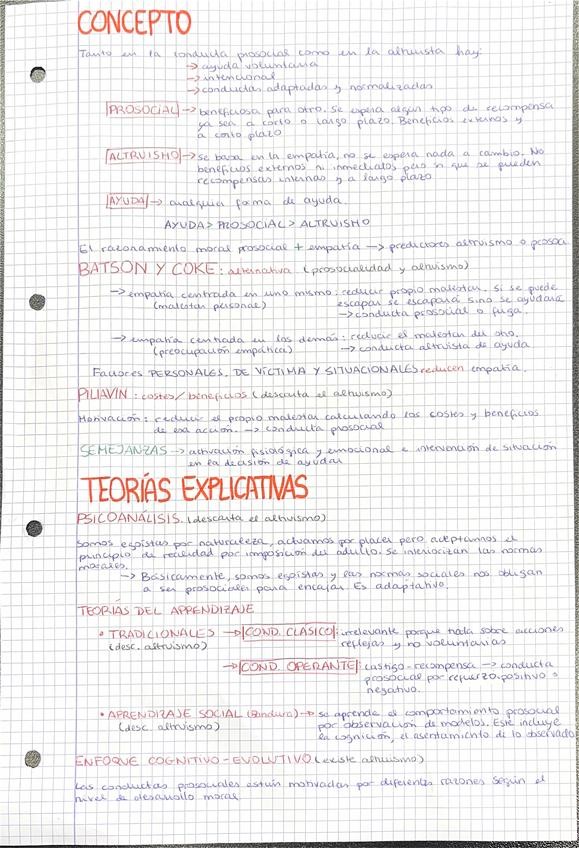 CONCEPTO
Tanto en la conducta prosocial como en la altruista hay:
→ ayuda voluntaria
→ intencional
→ conductas adaptadas y normalizadas
PROSOCIAL → beneficiosa para otro. Se espera algún tipo de recompensa
ya sea a corto o largo plazo. Beneficios externos y
a corto plazo
ALTRUISMO → se basa en la empatía, no se espera nada a cambio. No
beneficios externos ni inmediatos pero si que se pueden
recompensas internas y a largo plazo
AYUDA → cualquier forma de ayuda.
AYUDA > PROSOCIAL > ALTRUISMO
El razonamiento moral prosocial + empatía → predictores altruismo o prosoci
BATSON Y COKE: alternativa (prosocialidad y altruismo)
→ empatía centrada en uno mismo: reducir propio malestar. Si se puede
(malestar personal) escapar se escapará sino se ayudará
→ conducta prosocial o fuga.
→ empatía centrada en los demás: reducir el malestar del otro.
(preocupación empática) → conducta altruista de ayuda
Factores PERSONALES, DE VÍCTIMA Y SITUACIONALES reducen empatía.
PILIAVIN: costes/beneficios (descarta el altruismo)
Motivación: reducir el propio malestar calculando los costes y beneficios
de esa acción. → conducta prosocial
SEMEJANZAS → activación fisiológica y emocional e intervención de situación
en la decisión de ayudar
TEORÍAS EXPLICATIVAS
PSICOANÁLISIS. (descarta el altruismo)
Somos egoístas por naturaleza, actuamos por placer pero aceptamos el
principio de realidad por imposición del adulto. Se interiorizan las normas
morales.
→ Básicamente, somos egoístas y las normas sociales nos obligan
a ser prosociales para encajar. Es adaptativo.
TEORÍAS DEL APRENDIZAJE
• TRADICIONALES → COND. CLÁSICO: irrelevante porque trata sobre acciones
(desc. altruismo) reflejas y no voluntarias
→ COND. OPERANTE: castigo-recompensa → conducta
prosocial por refuerzo positivo o
negativo.
• APRENDIZAJE SOCIAL (Bandura) → se aprende el comportamiento prosocial
(desc. altruismo) por observación de modelos. Este incluye
la cognición, el asentamiento de lo observado
ENFOQUE COGNITIVO-EVOLUTIVO (existe altruismo)
Las conductas prosociales están motivadas por diferentes razones según el
nivel de desarrollo moral.